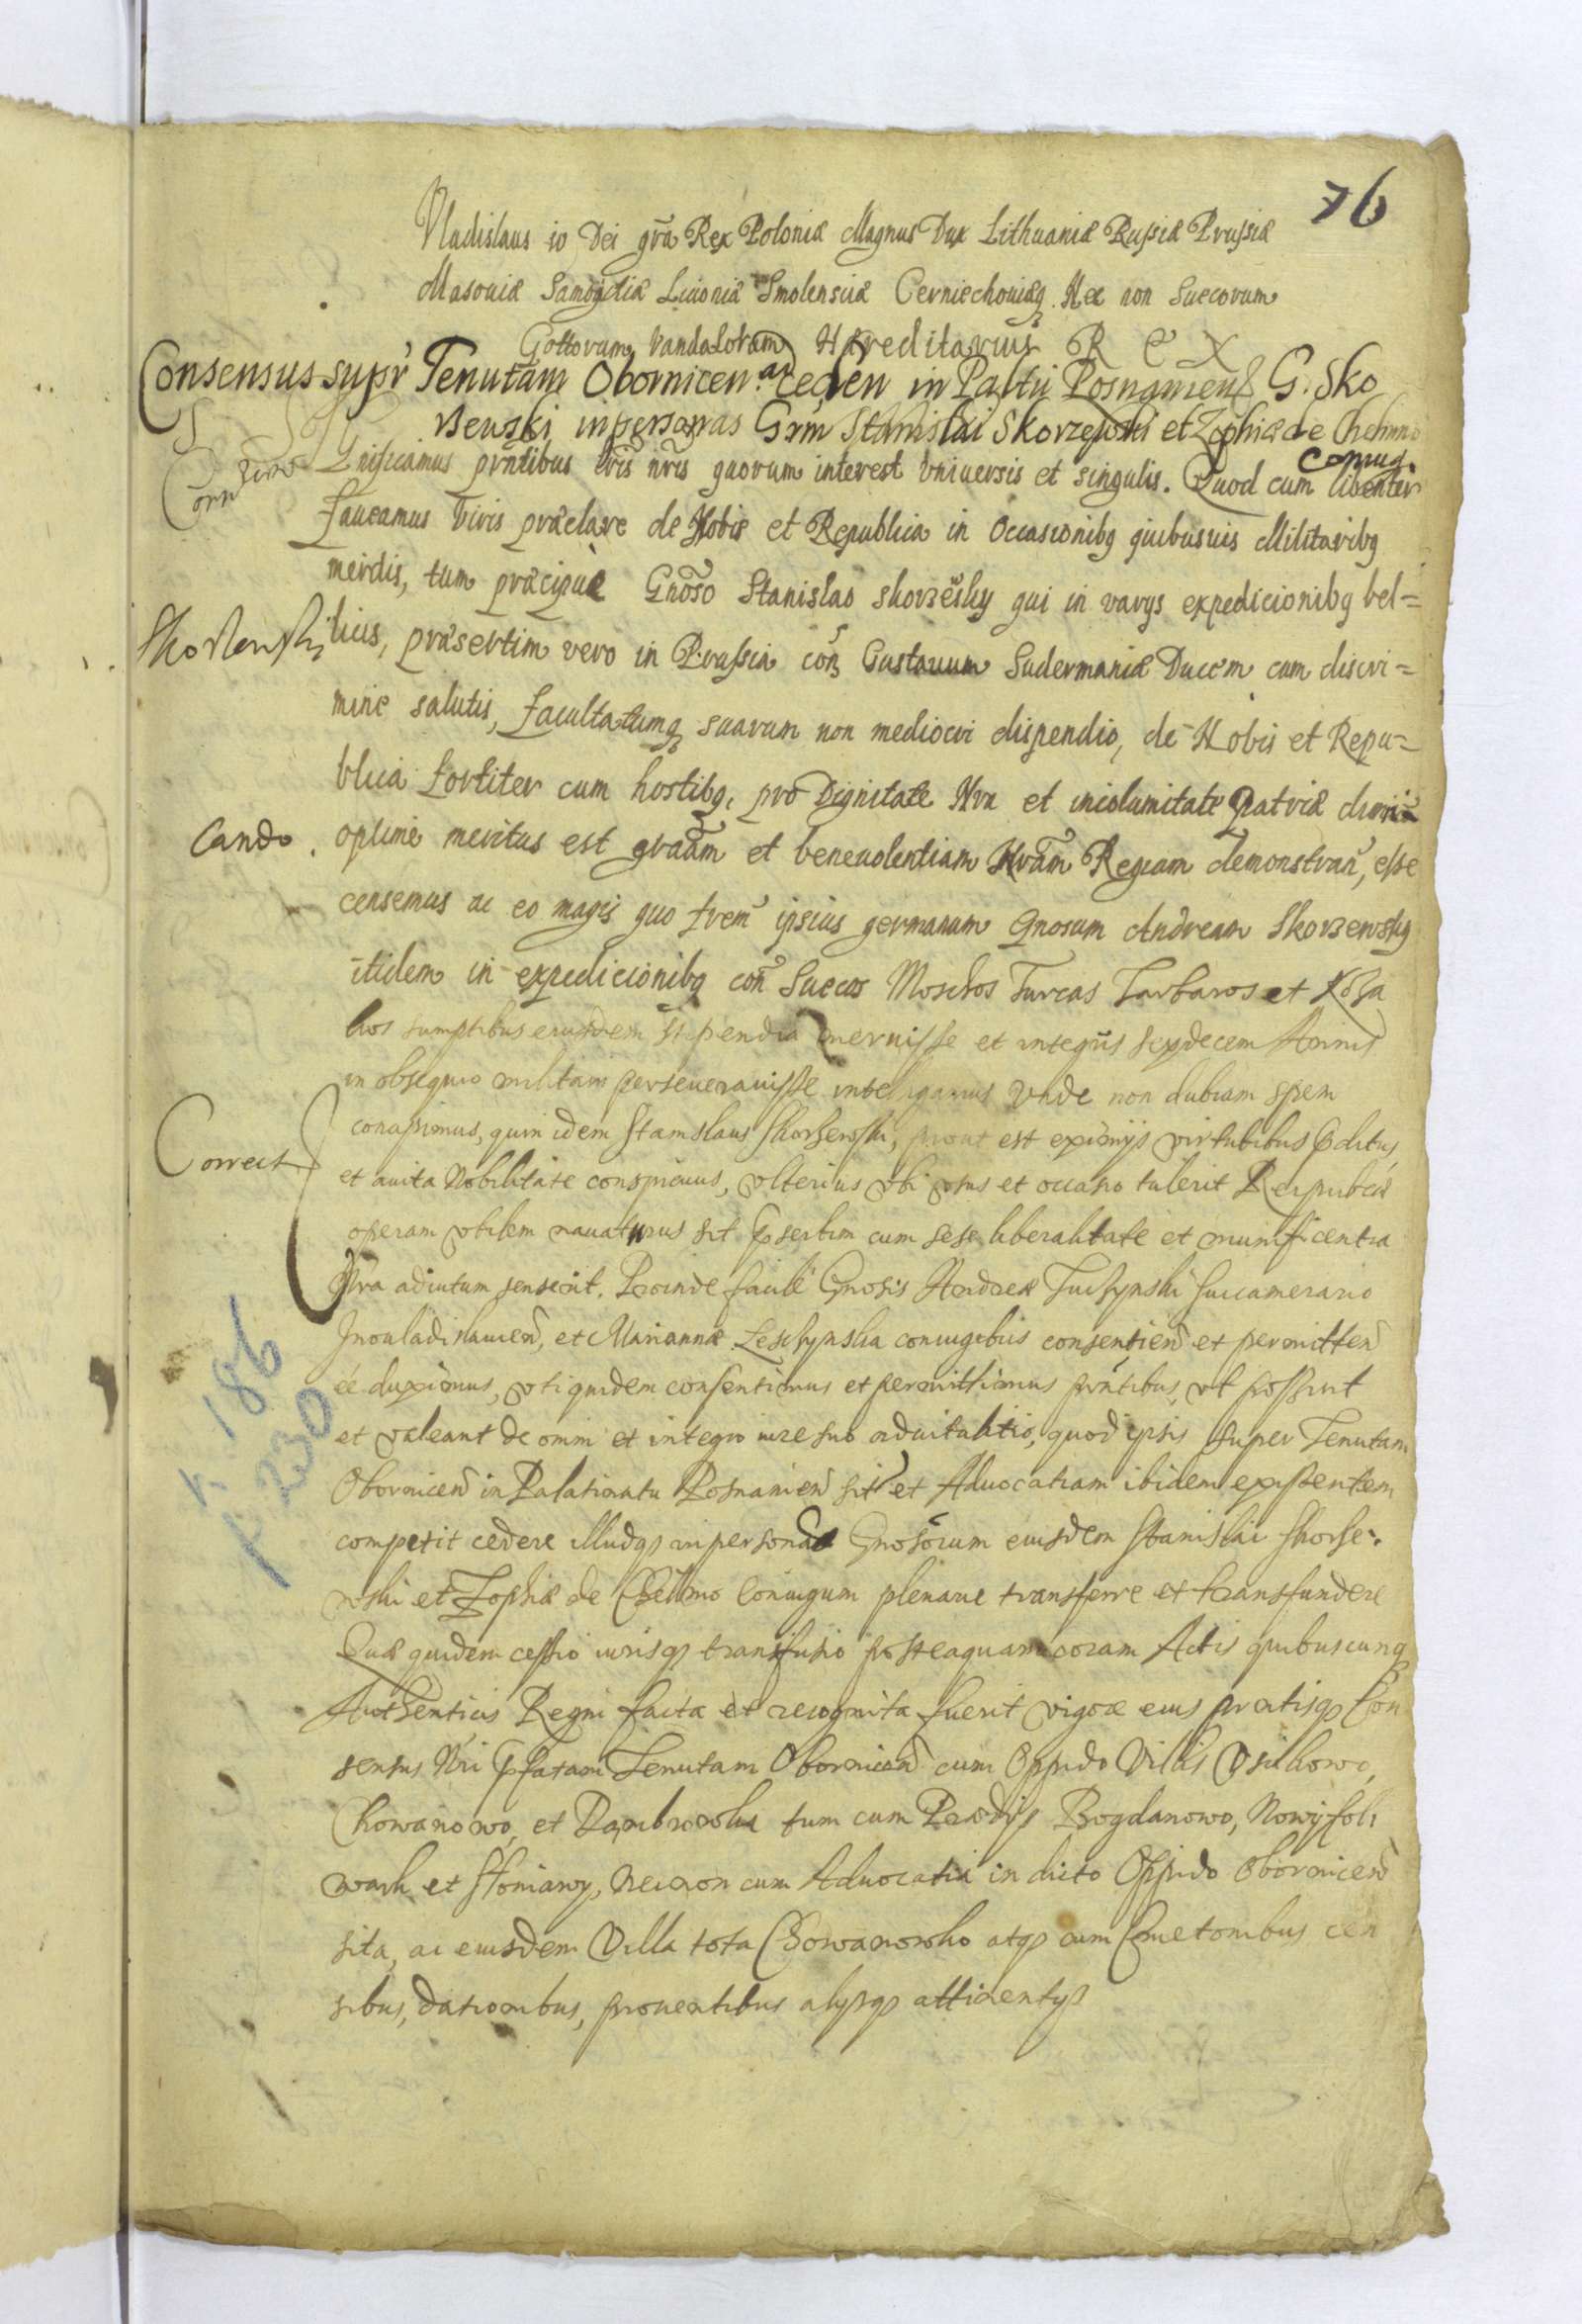 76
Vladislaus iv Dei grã Rex Poloniæ Magnus Dux Lithuaniæ Russiæ Prussiæ
Masoviæ Samogitiæ Livoniæ Smolensciæ Cerniechoviæq Nec non Suecorum
Gottorum Vandalorum Hæreditarius R E X
Consensus supr Tenutam Obornicen ceden in Paltu G. Sko
rzewski in personas Stanislai Skorzewski et Zophiæ de Chełmno
coniug.
Gnificamus prntibus lris nris quorum interest Vniuersis et singulis. Quod cum libenter
faueamus Viris præclare de Nobis et Republica in Occasionibq quibusuis Militaribq
meritis, tum præcipue Gnoso Stanislao skorzesky qui in varys expedicionibq bel=
Skorzewski
licis, præsertim vero in Prussia con Gustauum Sudermaniæ Ducem cum discri=
mine salutis, facultatumq suarum non mediocri dispendio, de Nobis et Repu=
blica fortiter cum hostibq, pro Dignitate Nra et incolumitate Patriæ dimi
Cando.
optime meritus est graãm et beneuolentiam Nrãm Regiam demonstran, esse
censemus ac eo magis quo frem ipsius germanum Gnosum Andream Skorzewsky
itidem in expedicionibq con Suecos Moschos Turcas Tartaros et Koza
kos sumptibus eiusdem stipendia meruisse et integris sexdecem Annis
in obsequio militari perseuerauisse intelligamus Vnde non dubiam spem
concipimus, quin idem Stanislaus Skorzewski, prout est eximijs virtutibus pditus,
Correct
et auita Nobilitate conspicuus, vlterius vbi vsus et occasio tulerit Reipublicæ
operam vtilem nauaturus sit psertim cum sese liberalitate et munificentia
Nra adiutum senserit. Proinde facile Gnosis Andreæ Tuczynski Succamerario
Inouladislauien, et Mariannæ Leszczynska coniugibus consentien et permitten
ee duximus, vti quidem consentimus et permittimus prntibus, vt possint
et valeant de omni et integro iure suo aduitalitio, quod ipsis super Tenutam
Obornicen in Palatinatu Posnanien sit et Aduocatiam ibidem existentem
competit cedere illudq in personas Gnosorum eiusdem Stanislai Skorze.
wski et Zophiæ de Chełmno Coniugum plenarie transferre et transfundere
Quæ quidem cessio iurisq transfusio posteaquam coram Actis quibuscunq
Authenticis Regni facta et recognita fuerit vigore eius prntisq Con
sensus Nri pfatam Tenutam Obornicen cum Oppido Villis Vscikowo,
Chowanowo, et Dambrowka tum cum Prædijs Bogdanowo, Nowyfol
wark et Słoniawy, necnon cum Aduocatia in dicto Oppido Obornicen
sita, ac eiusdem Villa tota Chowanowko atq cum Cmetonibus cen
sibus, dationibus, prouentibus alysq attinentys
k. 186
f. 230